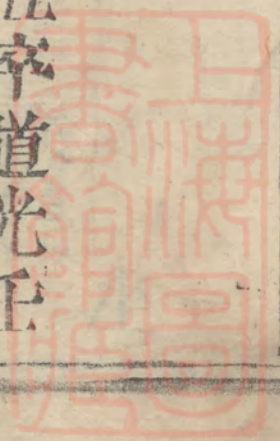 上海圖
書館藏
卒道光壬